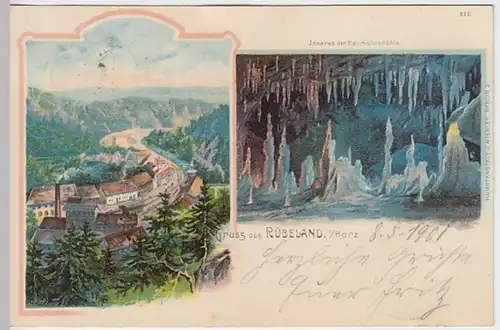 220
Inneres der Hermannshöhle
Gruss aus RÜBELAND. i/Harz
8.5.1901
Herzliche Grüße
Euer Fritz